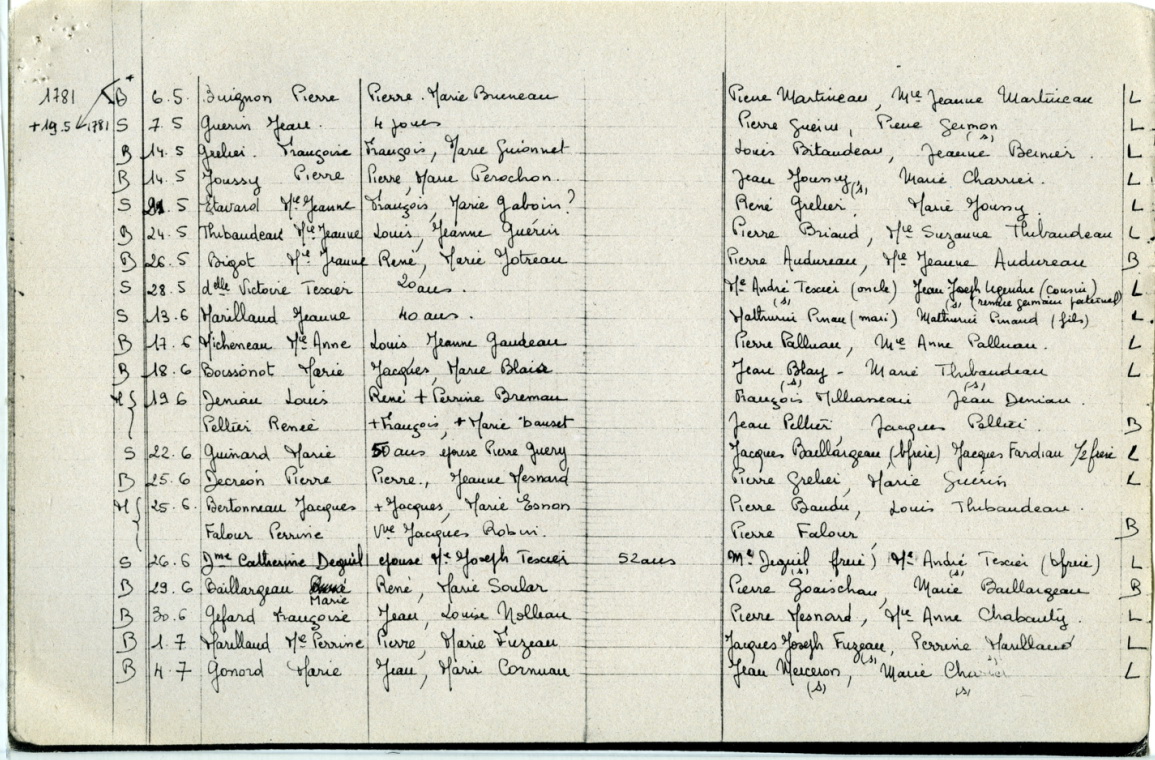 1781 B 6.5. Buignon Pierre Pierre. Marie Bruneau Pierre Martineau, Mie Jeanne Martineau L
+19.5 1781 S 7.5 Guerin Jean. 4 jours Pierre Guerin, Pierre Germon (s) L
B 14.5 Grelier. Françoise François, Marie Guionnet Louis Bitaudeau, Jeanne Bernier. L
B 14.5 Joussy Pierre Pierre, Marie Perochon. Jean Joussy (s), Marie Charrier. L
S 21.5 Etavard Mie Jeanne François, Marie Gaboin? René Grelier, Marie Joussy L
B 24.5 Thibaudeau Mie Jeanne Louis, Jeanne Guérin Pierre Briaud, Mie Suzanne Thibaudeau L
B 26.5 Bigot Mie Jeanne René, Marie Jotreau Pierre Audureau, Mie Jeanne Audureau B
S 28.5 delle Victoire Texier 20 ans. Me André Texier (s) (oncle) Jean Joseph (s) (cousin) L
S 13.6 Marillaud Jeanne 40 ans. Mathurin Pinau (mari) Mathurin Pinaud (fils) L
B 17.6 Micheneau Mie Anne Louis Jeanne Gaudeau Pierre Palluau, Mie Anne Palluau. L
B 18.6 Boussonot Marie Jacques, Marie Blais Jean Blay (s) - Marie Thibaudeau (s) L
M { 19 6 Deniau Louis René + Perrine Bremau François Jean Deniau.
Pellier Renée +François, + Marie Jean Pellier Jacques Pellier. B
S 22.6 Guinard Marie 50 ans epouse Pierre Guery Jacques Baillargeau (bfrère) Jacques Fardiau 1/2 frère L
B 25.6 Decreon Pierre Pierre., Jeanne Mesnard Pierre Grelier, Marie Guérin L
M { 25.6. Bertonneau Jacques + Jacques, Marie Esnon Pierre Baudu, Louis Thibaudeau.
Falour Perrine Vve Jacques Robin. Pierre Falour B
S 26.6 Dme Catherine Dequil epouse Me Joseph Texier 52 ans Me Jequil (s) frère) Me André Texier (s) (bfrère) L
B 29.6 Baillargeau Marie René, Marie Soulard Pierre Marie Baillargeau B
B 30.6 Gefard Françoise Jean, Louise Nolleau Pierre Mesnard, Mie Anne Chabauty. L
B 1.7 Marillaud Mie Perrine Pierre, Marie Fuzeau Jacques Joseph Fuzeau (s), Perrine Marillaud L
B 4.7 Gonord Marie Jean, Marie Cornuau Jean Merceron (s), Marie (s) L